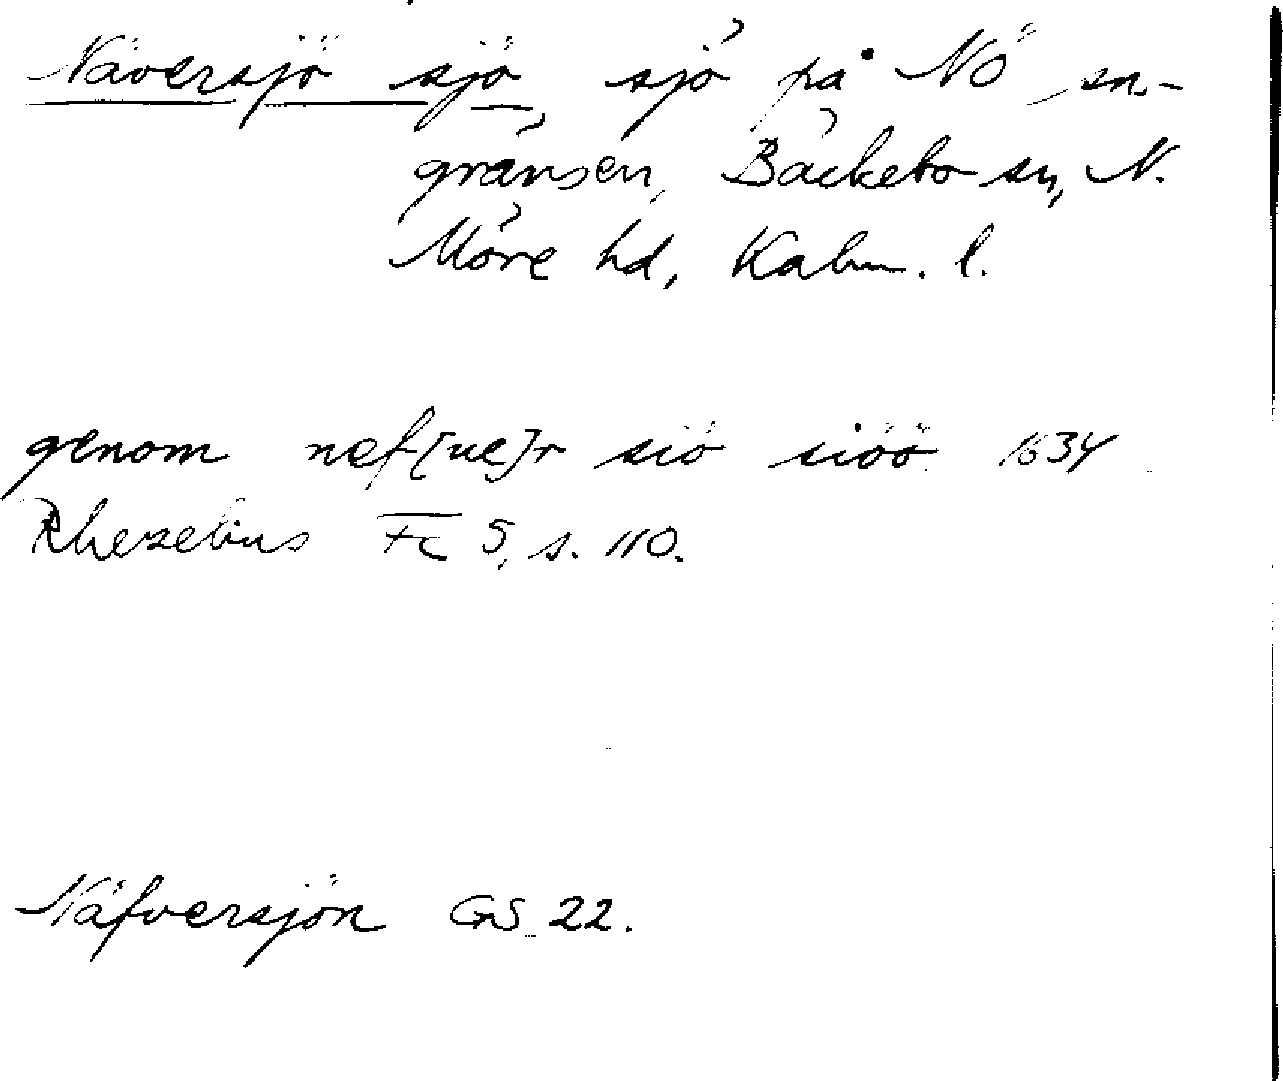 Näversjö sjö, sjö på NÖ sn-
gränsen, Bäckebo sn, N.
Möre hd, Kalm. l.
genom nef[ue]r siö siöö 1634
Rhezelius Fc 5, s. 110.
Näfversjön GS 22.